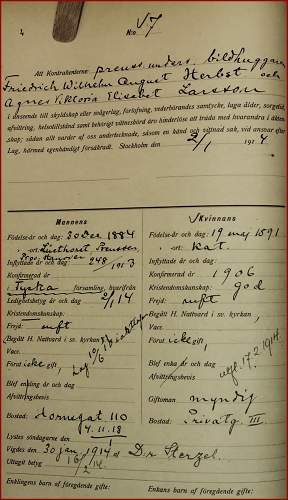 4
N:o 57
Att Kontrahenterne preuss. unders. bildhuggaren
Friedrich Wilhelm August Herbst och
Agnes Viktoria Elisabet Larsson
i anseende till skyldskap eller svågerlag, förlofning, vederbörandes samtycke, laga ålder, sorgetid,
afvittring, helsotillstånd samt behörigt vittnesbörd äro hinderlöse att träda med hvarandra i äkten-
skap; sådan allt varder af oss undertecknade, såsom en hvar vittnad sak, vid ansvar efter
Lag, härmed egenhändigt försäkradt. Stockholm den 2/1 1914
Mannens
Födelse-år och dag: 30 Dec 1884
ort: Preussen,
Prov. Hannover
Inflyttade år och dag: 248/1913
Konfirmerad år
i Tyska församling, hvarifrån
Ledighetsbetyg år och dag 2/1 14
Kristendomskunskap:
Frejd:
Begått H. Nattvard i sv. kyrkan
Vacc.
Förut icke gift,
Blef enkling år och dag
Afvittringsbevis
Bostad: Hornsgat 110
4. 11. 18
Lystes söndagarne den
Vigdes den 30 jan. 1914 af D:r Sterzel.
Uttagit betyg
Enklingens barn af föregående gifte:
Kvinnans
Födelse-år och dag: 19 maj 1891
ort: Kat.
Inflyttade år och dag:
Konfirmerad år 1906
Kristendomskunskap: god
Frejd:
Begått H. Nattvard i sv. kyrkan
Vacc.
Förut icke gift,
Blef enka år och dag
Afvittringsbevis
utfl. 17.2.1914
Giftoman myndig
Bostad: III.
Enkans barn af föregående gifte: